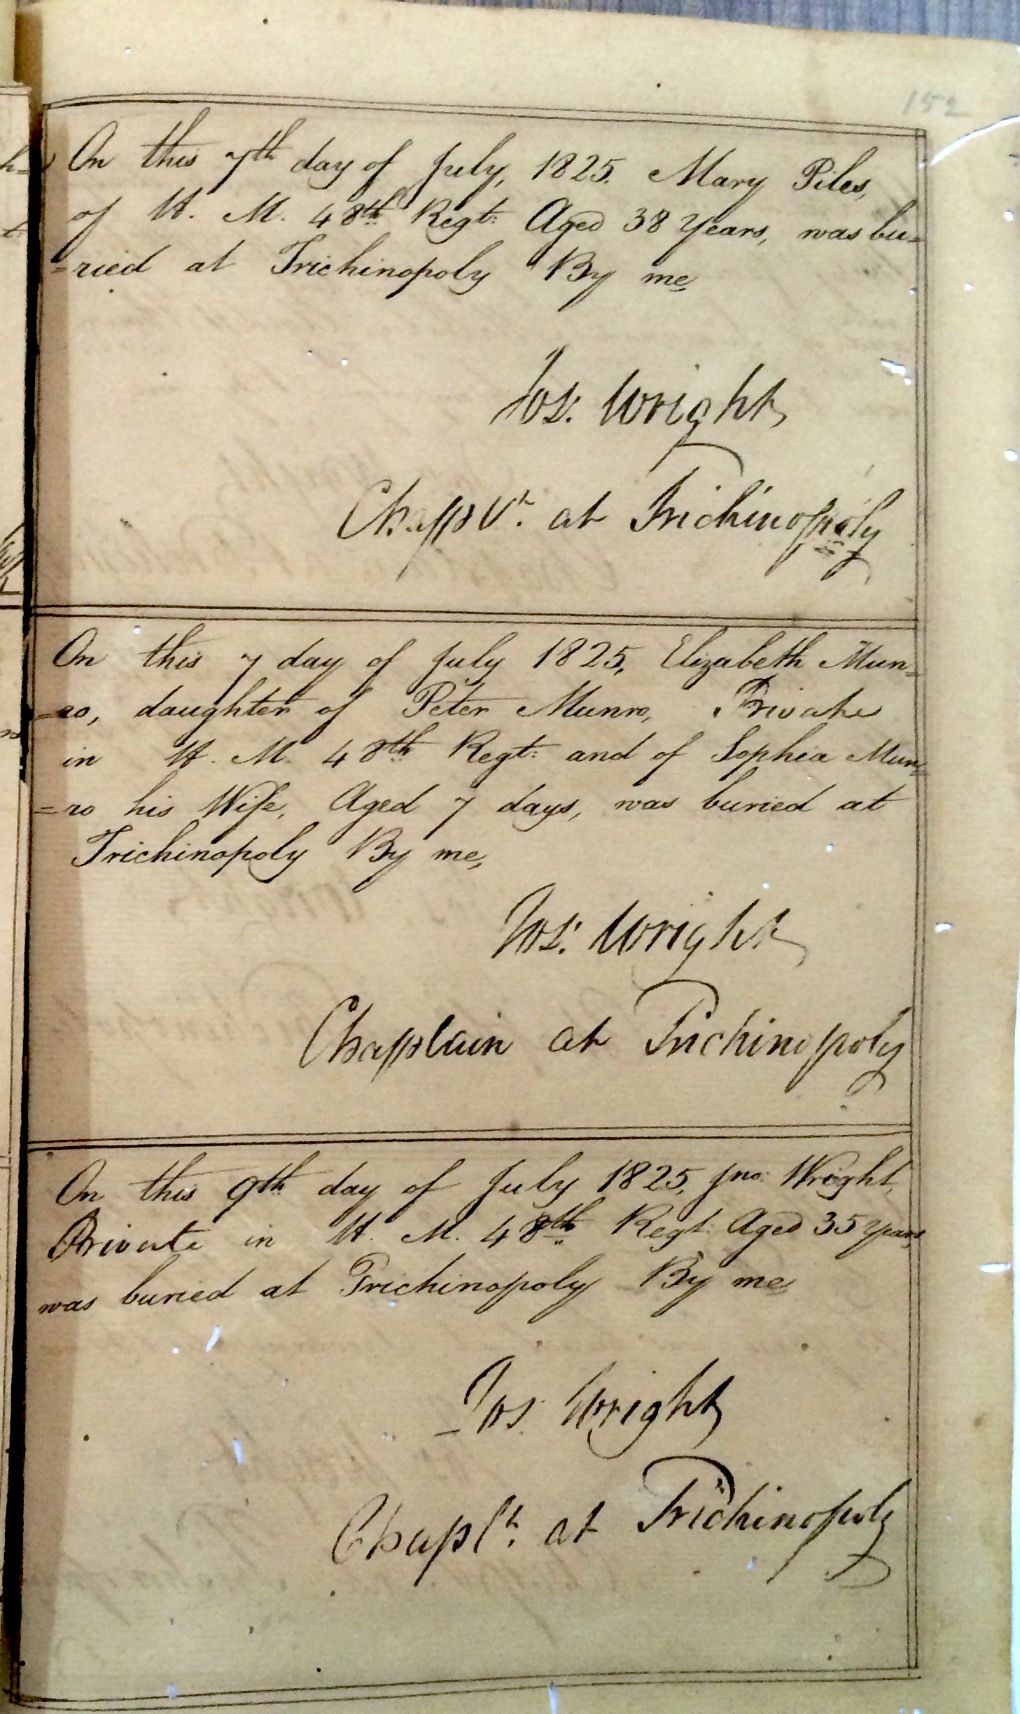 152
On this 7th day of July, 1825. Mary Piles,
of H. M. 48th Regt: Aged 38 Years, was bu=
=ried at Trichinopoly By me,
Jos: Wright
Chapln. at Trichinopoly
On this 7 day of July 1825, Elizabeth Mun=
=ro, daughter of Peter Munro, Private
in H. M. 48th Regt: and of Sophia Mun=
=ro his Wife, Aged 7 days, was buried at
Trichinopoly By me,
Jos: Wright
Chaplain at Trichinopoly
On this 9th day of July 1825, Jno: Wright,
Private in H. M. 48th Regt: Aged 35 Years,
was buried at Trichinopoly By me,
Jos: Wright
Chapln. at Trichinopoly